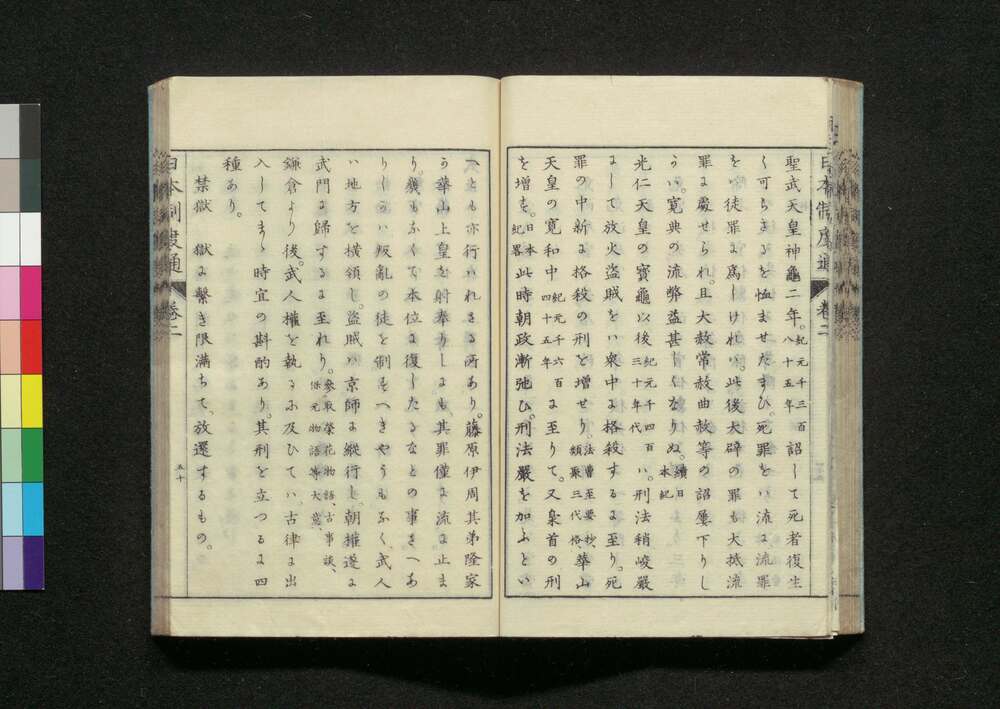 聖武天皇神龜二年。紀元千三百八十五年詔して死者復生
く可らさるを恤ませたまひ。死罪をい流に流罪
をい徒罪に爲しけれい。此後大辟の罪も大抵流
罪に處せられ。且大赦常赦曲赦等の詔屢下りし
らい。寛典の流弊益甚しくなりぬ。續日本紀
光仁天皇の寶龜以後紀元千四百三十年代い。刑法稍峻嚴
にして放火盜賊をい衆中に格殺するに至り。死
罪の中新に格殺の刑を增せり。法曹至要抄、類聚三代格、華山
天皇の寛和中紀元千六百四十五年に至りて。又梟首の刑
を增す。日本紀畧此時朝政漸弛ひ。刑法嚴を加ふとい
へとも亦行いれさる所あり。藤原伊周其弟隆家
ら華山上皇を射奉りしも。其罪僅に流に止ま
り。幾もふくて本位に復したるなとの事さへあ
りしらい叛亂の徒を制すへきやうもふく武人
い地方を橫領し。盜賊い京師に縱行し。朝權遂に
武門に歸するに至れり。參取榮花物語、古事談、保元物語等大意、
鎌倉より後。武人權を執るふ及ひてい。古律に出
入してまゝ時宜の斟酌あり。其刑を立つるに四
種あり。
禁獄 獄に繫き限滿ちて、放還するもの。
日本制度通 卷二
五十
日本制度通 卷二